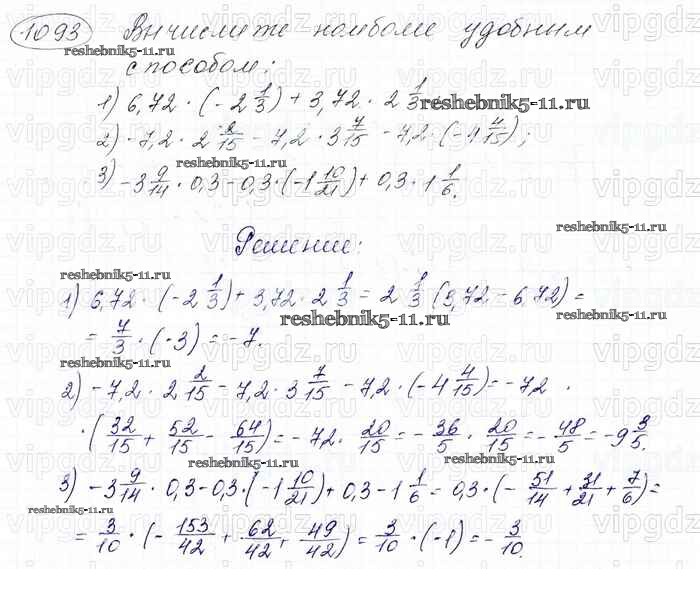 1093 Вычислите наиболее удобным
способом:
1) 6,72 · (-2 1/3) + 3,72 · 2 1/3;
2) -7,2 · 2 2/15 - 7,2 · 3 7/15 - 7,2 · (-4 4/15);
3) -3 9/14 · 0,3 - 0,3 · (-1 10/21) + 0,3 · 1 1/6.
Решение:
1) 6,72 · (-2 1/3) + 3,72 · 2 1/3 = 2 1/3 (3,72 - 6,72) =
= 7/3 · (-3) = -7.
2) -7,2 · 2 2/15 - 7,2 · 3 7/15 - 7,2 · (-4 4/15) = -7,2 ·
· (32/15 + 52/15 - 64/15) = -7,2 · 20/15 = -36/5 · 20/15 = -48/5 = -9 3/5.
3) -3 9/14 · 0,3 - 0,3 · (-1 10/21) + 0,3 - 1 1/6 = 0,3 · (-51/14 + 31/21 + 7/6) =
= 3/10 · (-153/42 + 62/42 + 49/42) = 3/10 · (-1) = -3/10.
reshebnik5-11.ru
vipgdz.ru